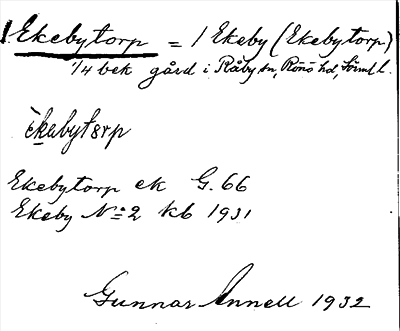 1. Ekebytorp = 1 Ekeby (Ekebytorp)
1/4 bek gård i Råby sn, Rönö hd, Sörml l.
èkabytɛrp
Ekebytorp ek G. 66
Ekeby No 2 kb 1931
Gunnar Annell 1932